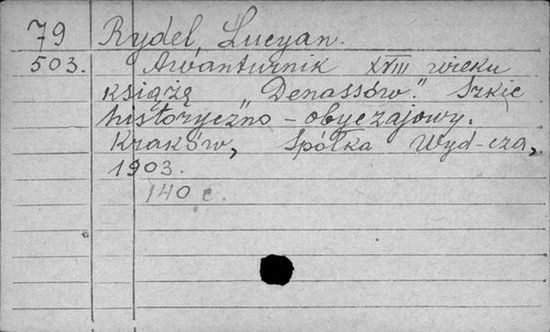 79 Rydel, Lucyan.
503. „Awanturnik XVIII wieku
książę Denassów." Szkic
historyczno-obyczajowy.
Kraków, Spółka Wyd-cza,
1903.
140 c.